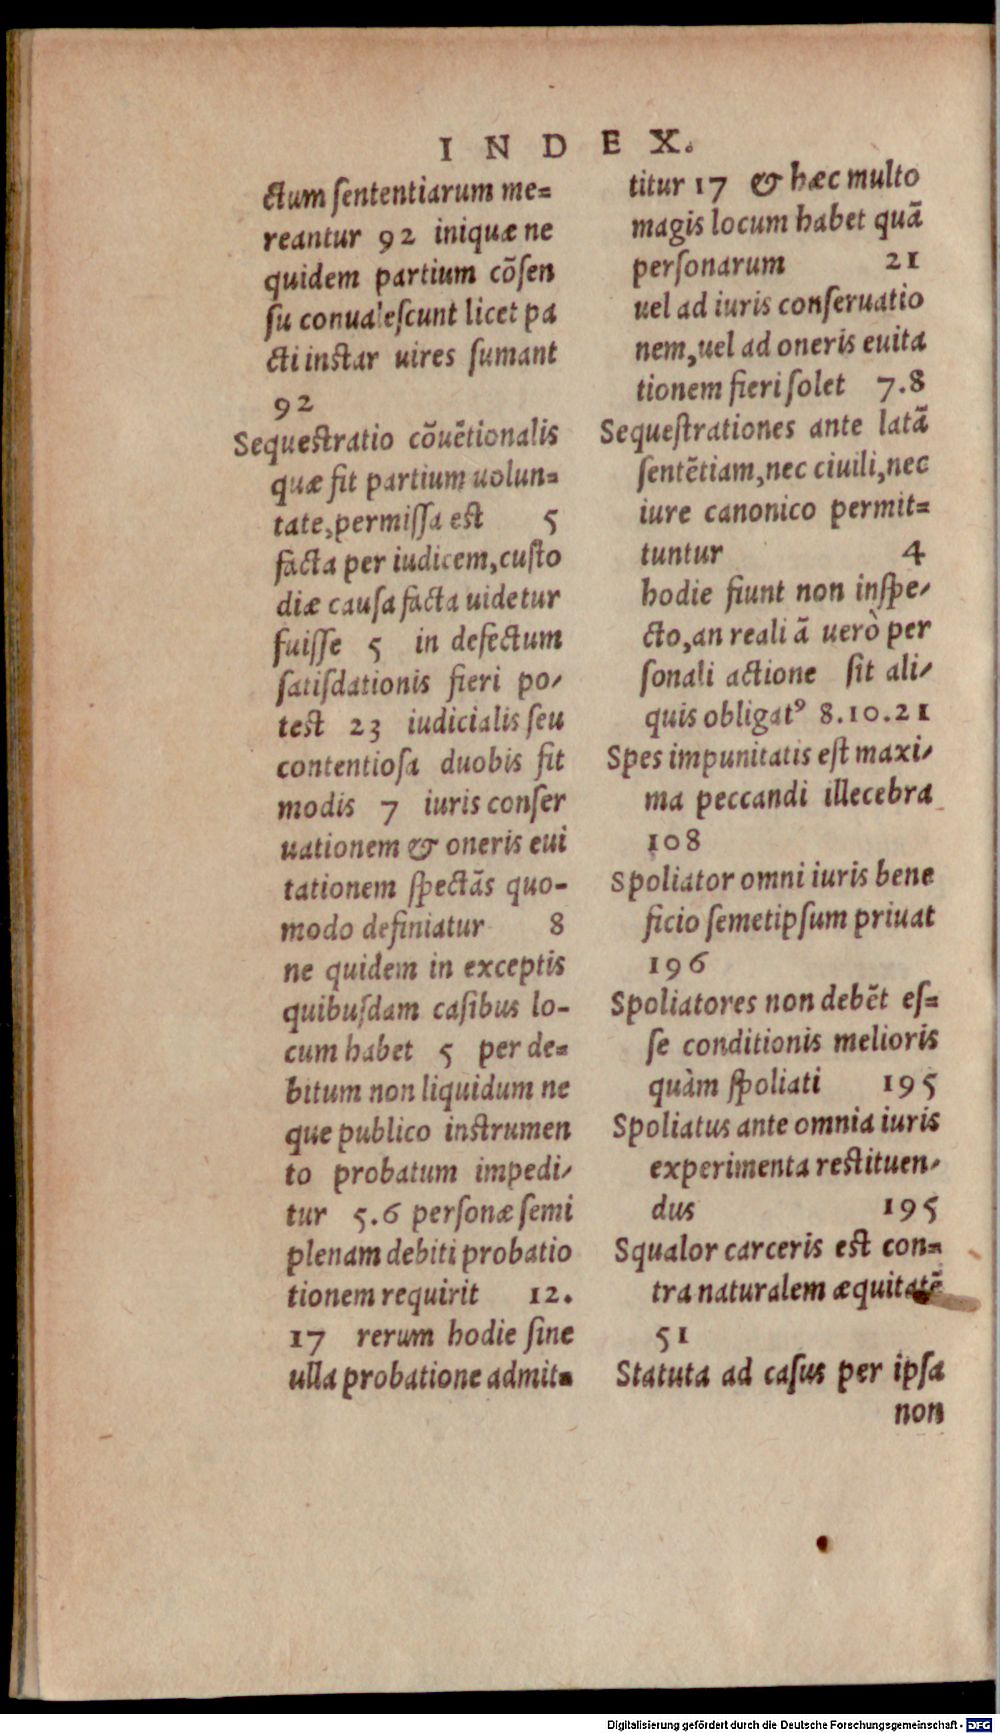 INDEX.
ctum ſententiarum me=
reantur 92 iniquæ ne
quidem partium cõſen
ſu conualeſcunt licet pa
cti instar uires ſumant
92
Sequestratio cõuẽtionalis
quæ fit partium uolun=
tate, permiſſa est 5
facta per iudicem, cuſto
diæ cauſa facta uidetur
fuiſſe 5 in defectum
ſatiſdationis fieri po-
test 23 iudicialis ſeu
contentioſa duobis fit
modis 7 iuris conſer
uationem & oneris eui
tationem ſpectãs quo-
modo definiatur 8
ne quidem in exceptis
quibuſdam caſibus lo-
cum habet 5 per de=
bitum non liquidum ne
que publico instrumen
to probatum impedi-
tur 5.6 perſonæ ſemi
plenam debiti probatio
tionem requirit 12.
17 rerum hodie ſine
ulla probatione admit=
titur 17 & hæc multo
magis locum habet quã
perſonarum 21
uel ad iuris conſeruatio
nem, uel ad oneris euita
tionem fieri ſolet 7.8
Sequeſtrationes ante latã
ſentẽtiam, nec ciuili, nec
iure canonico permit=
tuntur 4
hodie fiunt non inſpe-
cto, an reali ã uerò per
ſonali actione ſit ali-
quis obligatꝰ 8.10.21
Spes impunitatis eſt maxi-
ma peccandi illecebra
108
Spoliator omni iuris bene
ficio ſemetipſum priuat
196
Spoliatores non debẽt eſ=
ſe conditionis melioris
quàm ſpoliati 195
Spoliatus ante omnia iuris
experimenta restituen-
dus 195
Squalor carceris est con=
tra naturalem æquitatẽ
51
Statuta ad caſus per ipſa
non
Digitalisierung gefördert durch die Deutsche Forschungsgemeinschaft - DFG